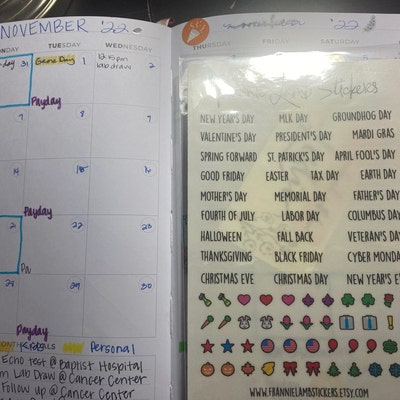 NOVEMBER '22
November '22
NDAY TUESDAY WEDNESDAY
THURSDAY FRIDAY SATURDAY
day 31 Game Day 1 12:15pm 2
lab draw
Payday
7 8 9
14 15 16
Payday
2 22 23
Pa
27 29 30
Payday
Personal
Echo test @ Baptist Hospital
m Lab Draw @ Cancer Center
Follow up @ Cancer Center
Lamb Stickers
NEW YEAR'S DAY MLK DAY GROUNDHOG DAY
VALENTINE'S DAY PRESIDENT'S DAY MARDI GRAS
SPRING FORWARD ST. PATRICK'S DAY APRIL FOOL'S DAY
GOOD FRIDAY EASTER TAX DAY EARTH DAY
MOTHER'S DAY MEMORIAL DAY FATHER'S DAY
FOURTH OF JULY LABOR DAY COLUMBUS DAY
HALLOWEEN FALL BACK VETERAN'S DAY
THANKSGIVING BLACK FRIDAY CYBER MONDA
CHRISTMAS EVE CHRISTMAS DAY NEW YEAR'S E
WWW.FRANNIELAMBSTICKERS.ETSY.COM